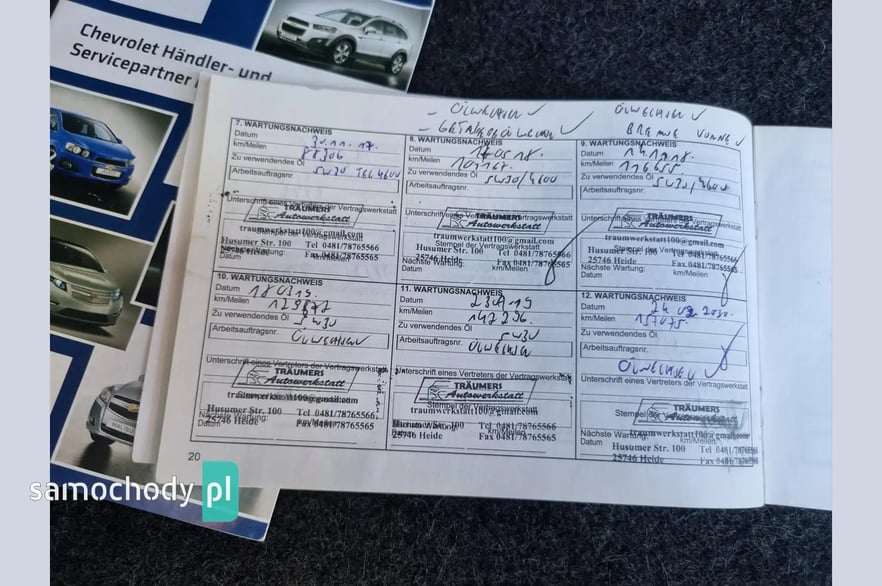 Chevrolet Händler- und
Servicepartner
MALIBU
- ÖLWECHSELN ✓
- GETRIEBEÖLWECHSELN ✓
ÖLWECHSELN ✓
BREMSE VORNE ✓
7. WARTUNGSNACHWEIS
Datum 30.11.17.
km/Meilen 88306
Zu verwendendes Öl
5W30
Arbeitsauftragsnr.
Unterschrift eines Vertreters der Vertragswerkstatt
TRÄUMERS
Autowerkstatt
traumwerkstatt100@gmail.com
Stempel der Vertragswerkstatt
Husumer Str. 100 Tel 0481/78765566
25746 Heide Fax 0481/78765565
Nächste Wartung:
Datum km/Meilen
8. WARTUNGSNACHWEIS
Datum 17.05.18.
km/Meilen 101167.
Zu verwendendes Öl
5W30/4600
Arbeitsauftragsnr.
Unterschrift eines Vertreters der Vertragswerkstatt
TRÄUMERS
Autowerkstatt
traumwerkstatt100@gmail.com
Stempel der Vertragswerkstatt
Husumer Str. 100 Tel 0481/78765566
25746 Heide Fax 0481/78765565
Nächste Wartung:
Datum km/Meilen
9. WARTUNGSNACHWEIS
Datum 14.11.18.
km/Meilen 116455.
Zu verwendendes Öl
5W30/4600
Arbeitsauftragsnr.
Unterschrift eines Vertreters der Vertragswerkstatt
TRÄUMERS
Autowerkstatt
traumwerkstatt100@gmail.com
Stempel der Vertragswerkstatt
Husumer Str. 100 Tel 0481/78765566
25746 Heide Fax 0481/78765565
Nächste Wartung:
Datum km/Meilen
10. WARTUNGSNACHWEIS
Datum 180319.
km/Meilen 129872
Zu verwendendes Öl
5W30
Arbeitsauftragsnr.
ÖLWECHSELN
Unterschrift eines Vertreters der Vertragswerkstatt
TRÄUMERS
Autowerkstatt
traumwerkstatt100@gmail.com
Husumer Str. 100 Tel 0481/78765566
25746 Heide Fax 0481/78765565
Nächste Wartung:
Datum km/Meilen
11. WARTUNGSNACHWEIS
Datum
km/Meilen 142296.
Zu verwendendes Öl
5W30
Arbeitsauftragsnr. ÖLWECHSELN
Unterschrift eines Vertreters der Vertragswerkstatt
TRÄUMERS
Autowerkstatt
Stempel der Vertragswerkstatt
traumwerkstatt100@gmail.com
Husumer Str. 100 Tel 0481/78765566
25746 Heide Fax 0481/78765565
Nächste Wartung:
Datum km/Meilen
12. WARTUNGSNACHWEIS
Datum 24 02 2020.
km/Meilen 157075.
Zu verwendendes Öl
Arbeitsauftragsnr.
ÖLWECHSELN ✓
Unterschrift eines Vertreters der Vertragswerkstatt
TRÄUMERS
Autowerkstatt
Stempel der Vertragswerkstatt
traumwerkstatt100@gmail.com
Nächste Wartung:
Datum km/Meilen
Husumer Str. 100 Tel 0481/78765566
25746 Heide Fax 0481/78765565
20
samochody pl